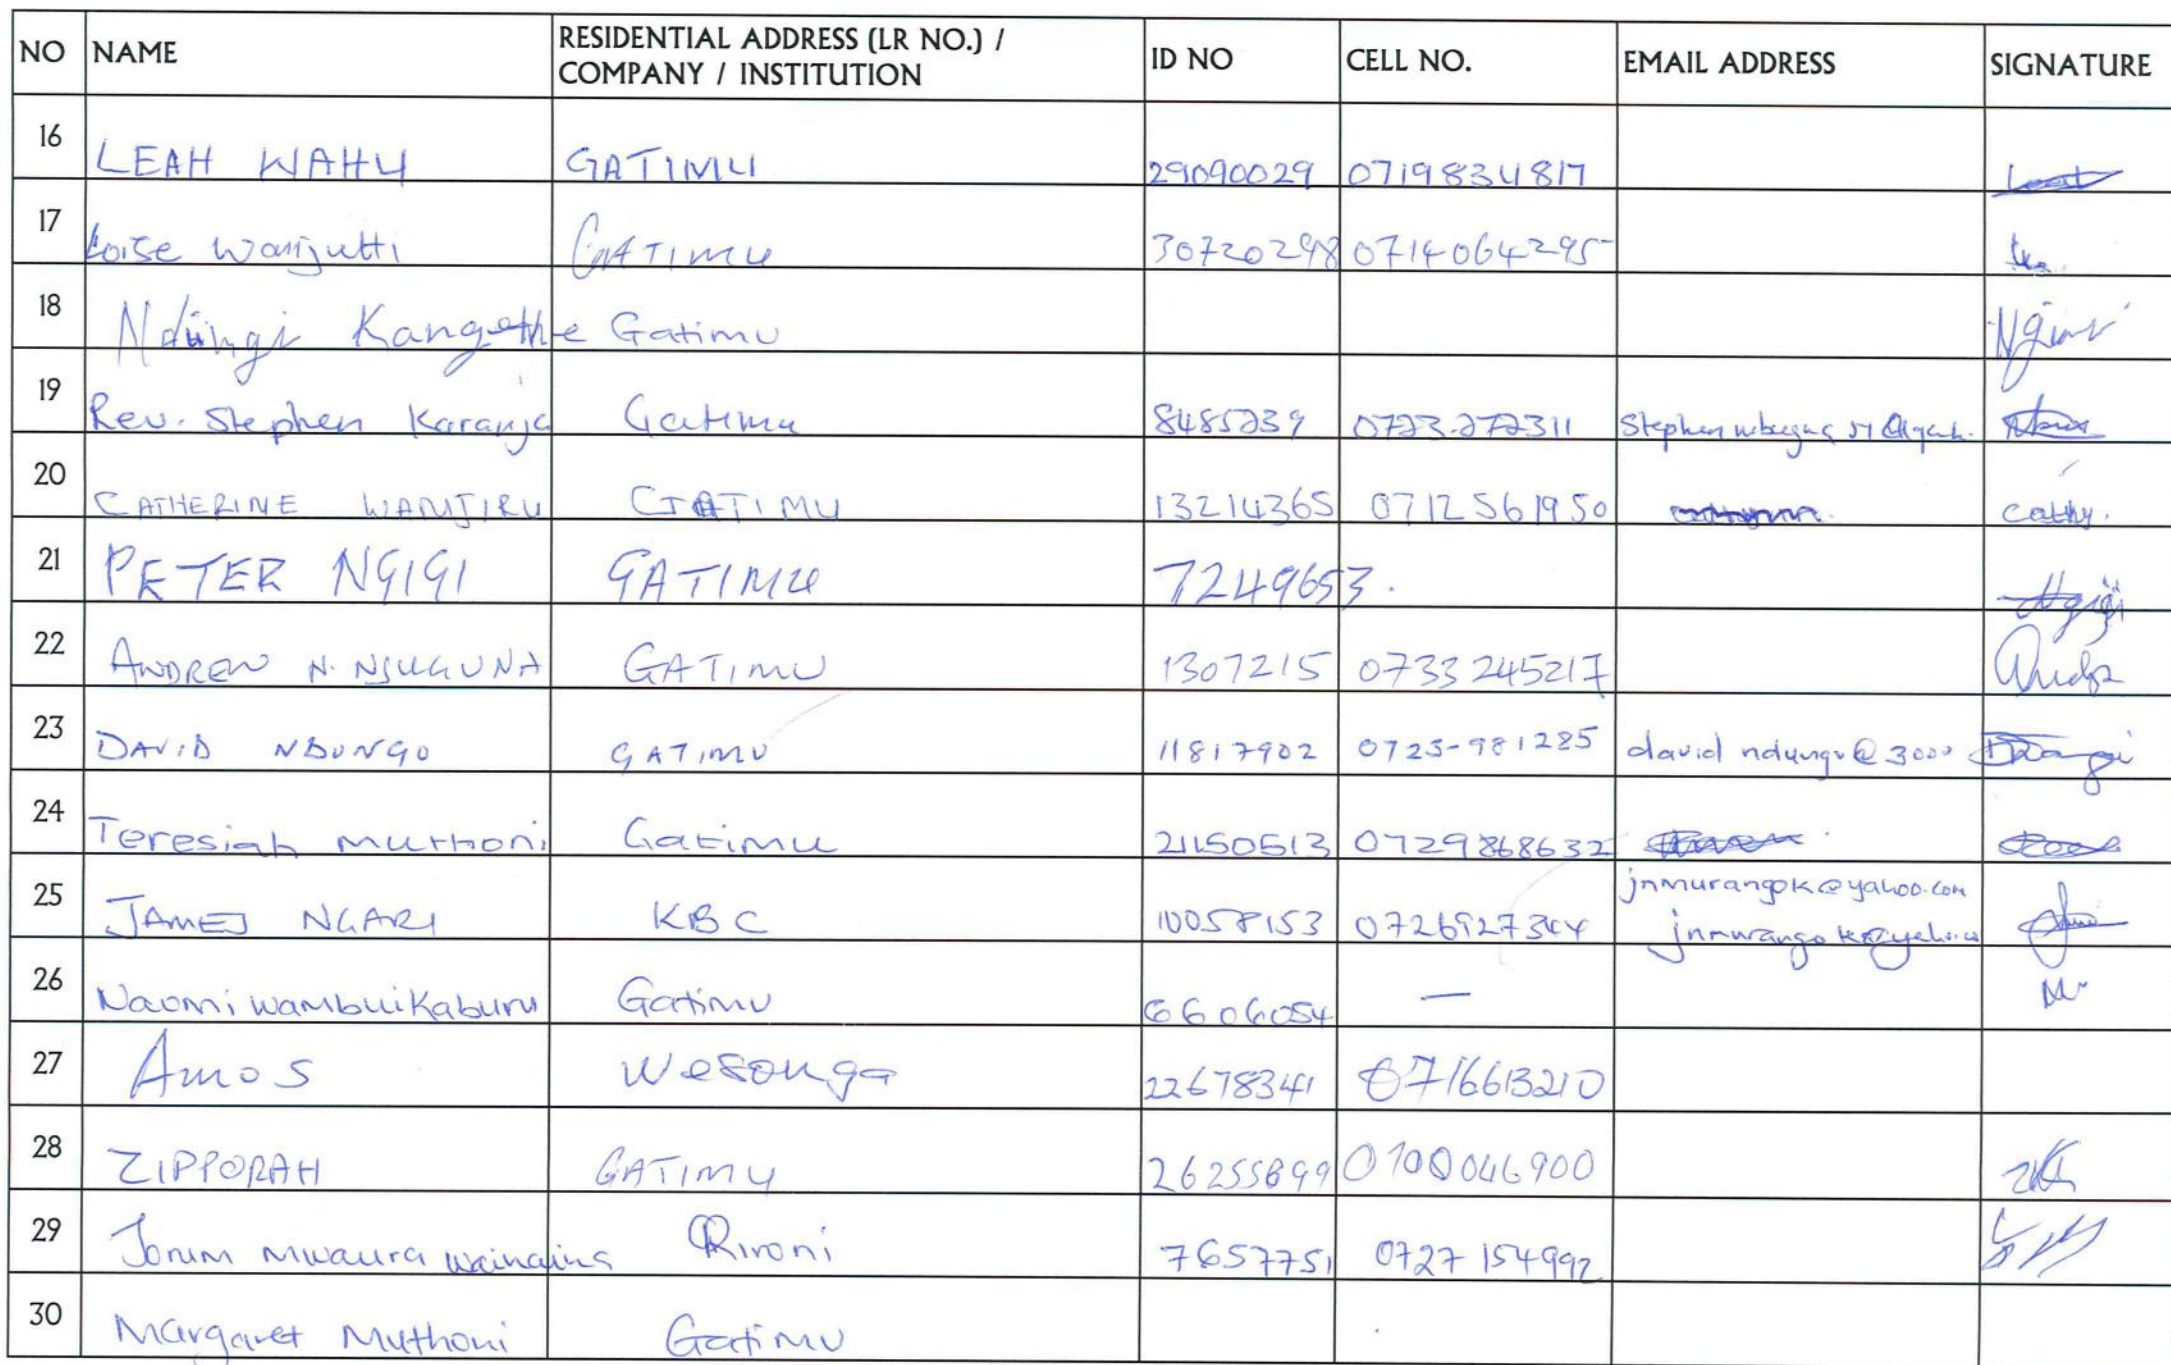 NO NAME RESIDENTIAL ADDRESS (LR NO.) / COMPANY / INSTITUTION ID NO CELL NO. EMAIL ADDRESS SIGNATURE
16 LEAH WAHU GATIMU 29090029 0719834817
17 Loise Wanjutti GATIMU 30720298 0714064295
18 Nduingi Kangethe Gatimu
19 Rev. Stephen Karanja Gatimu 8485239 0723-272311 Stephen
20 CATHERINE WANJIRU GATIMU 13214365 0712561950 Cathy.
21 PETER NGIGI GATIMU 7249653. Ngigi
22 ANDREW N. NJUGUNA GATIMU 1307215 0733245217
23 DAVID NDUNGO GATIMU 11817902 0723-981285 david ndungu@3000
24 Teresiah Muthoni Gatimu 21150513 0729868632
25 JAMES NGARI KBC 10058153 0726927344 jnmurangok@yahoo.com
jnmurangok@yahoo.co
26 Naomi Wambui Kaburu Gatimu 6606054 —
27 Amos Wesonga 22678341 0716613210
28 ZIPPORAH GATIMU 26255899 0700046900
29 Jorum Mwaura Wainaina Rironi 7657751 0727154992
30 Margaret Muthoni Gatimu